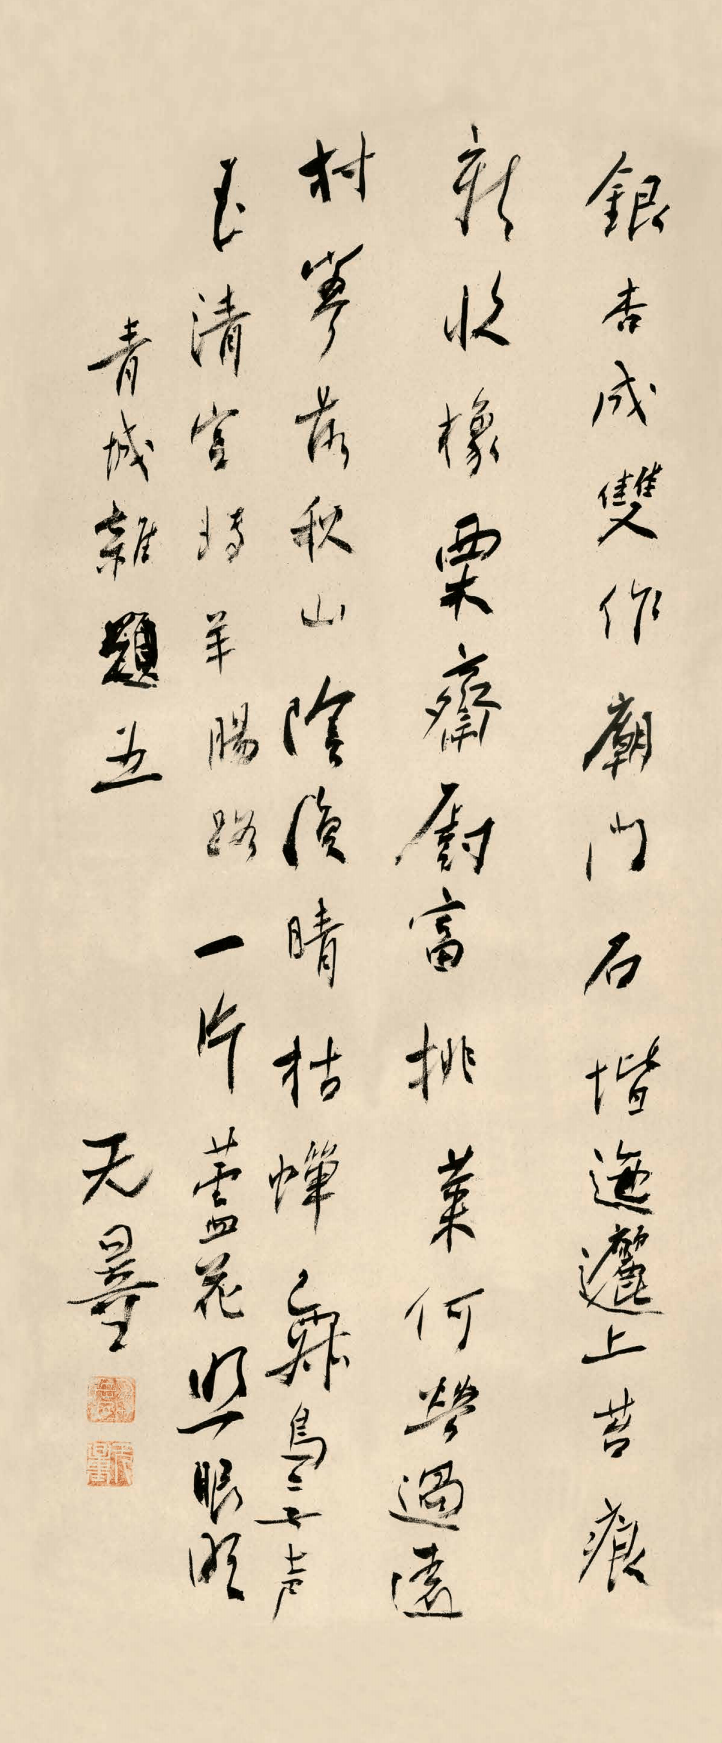 銀杏成雙作廟門石堦迤邐上苔痕
新收橡栗齋廚富挑菜何勞過遠
村落秋山陰復晴枯蟬鳥声
玉清宮轉羊腸路一片蘆花照眼明
青城雜題五
无量